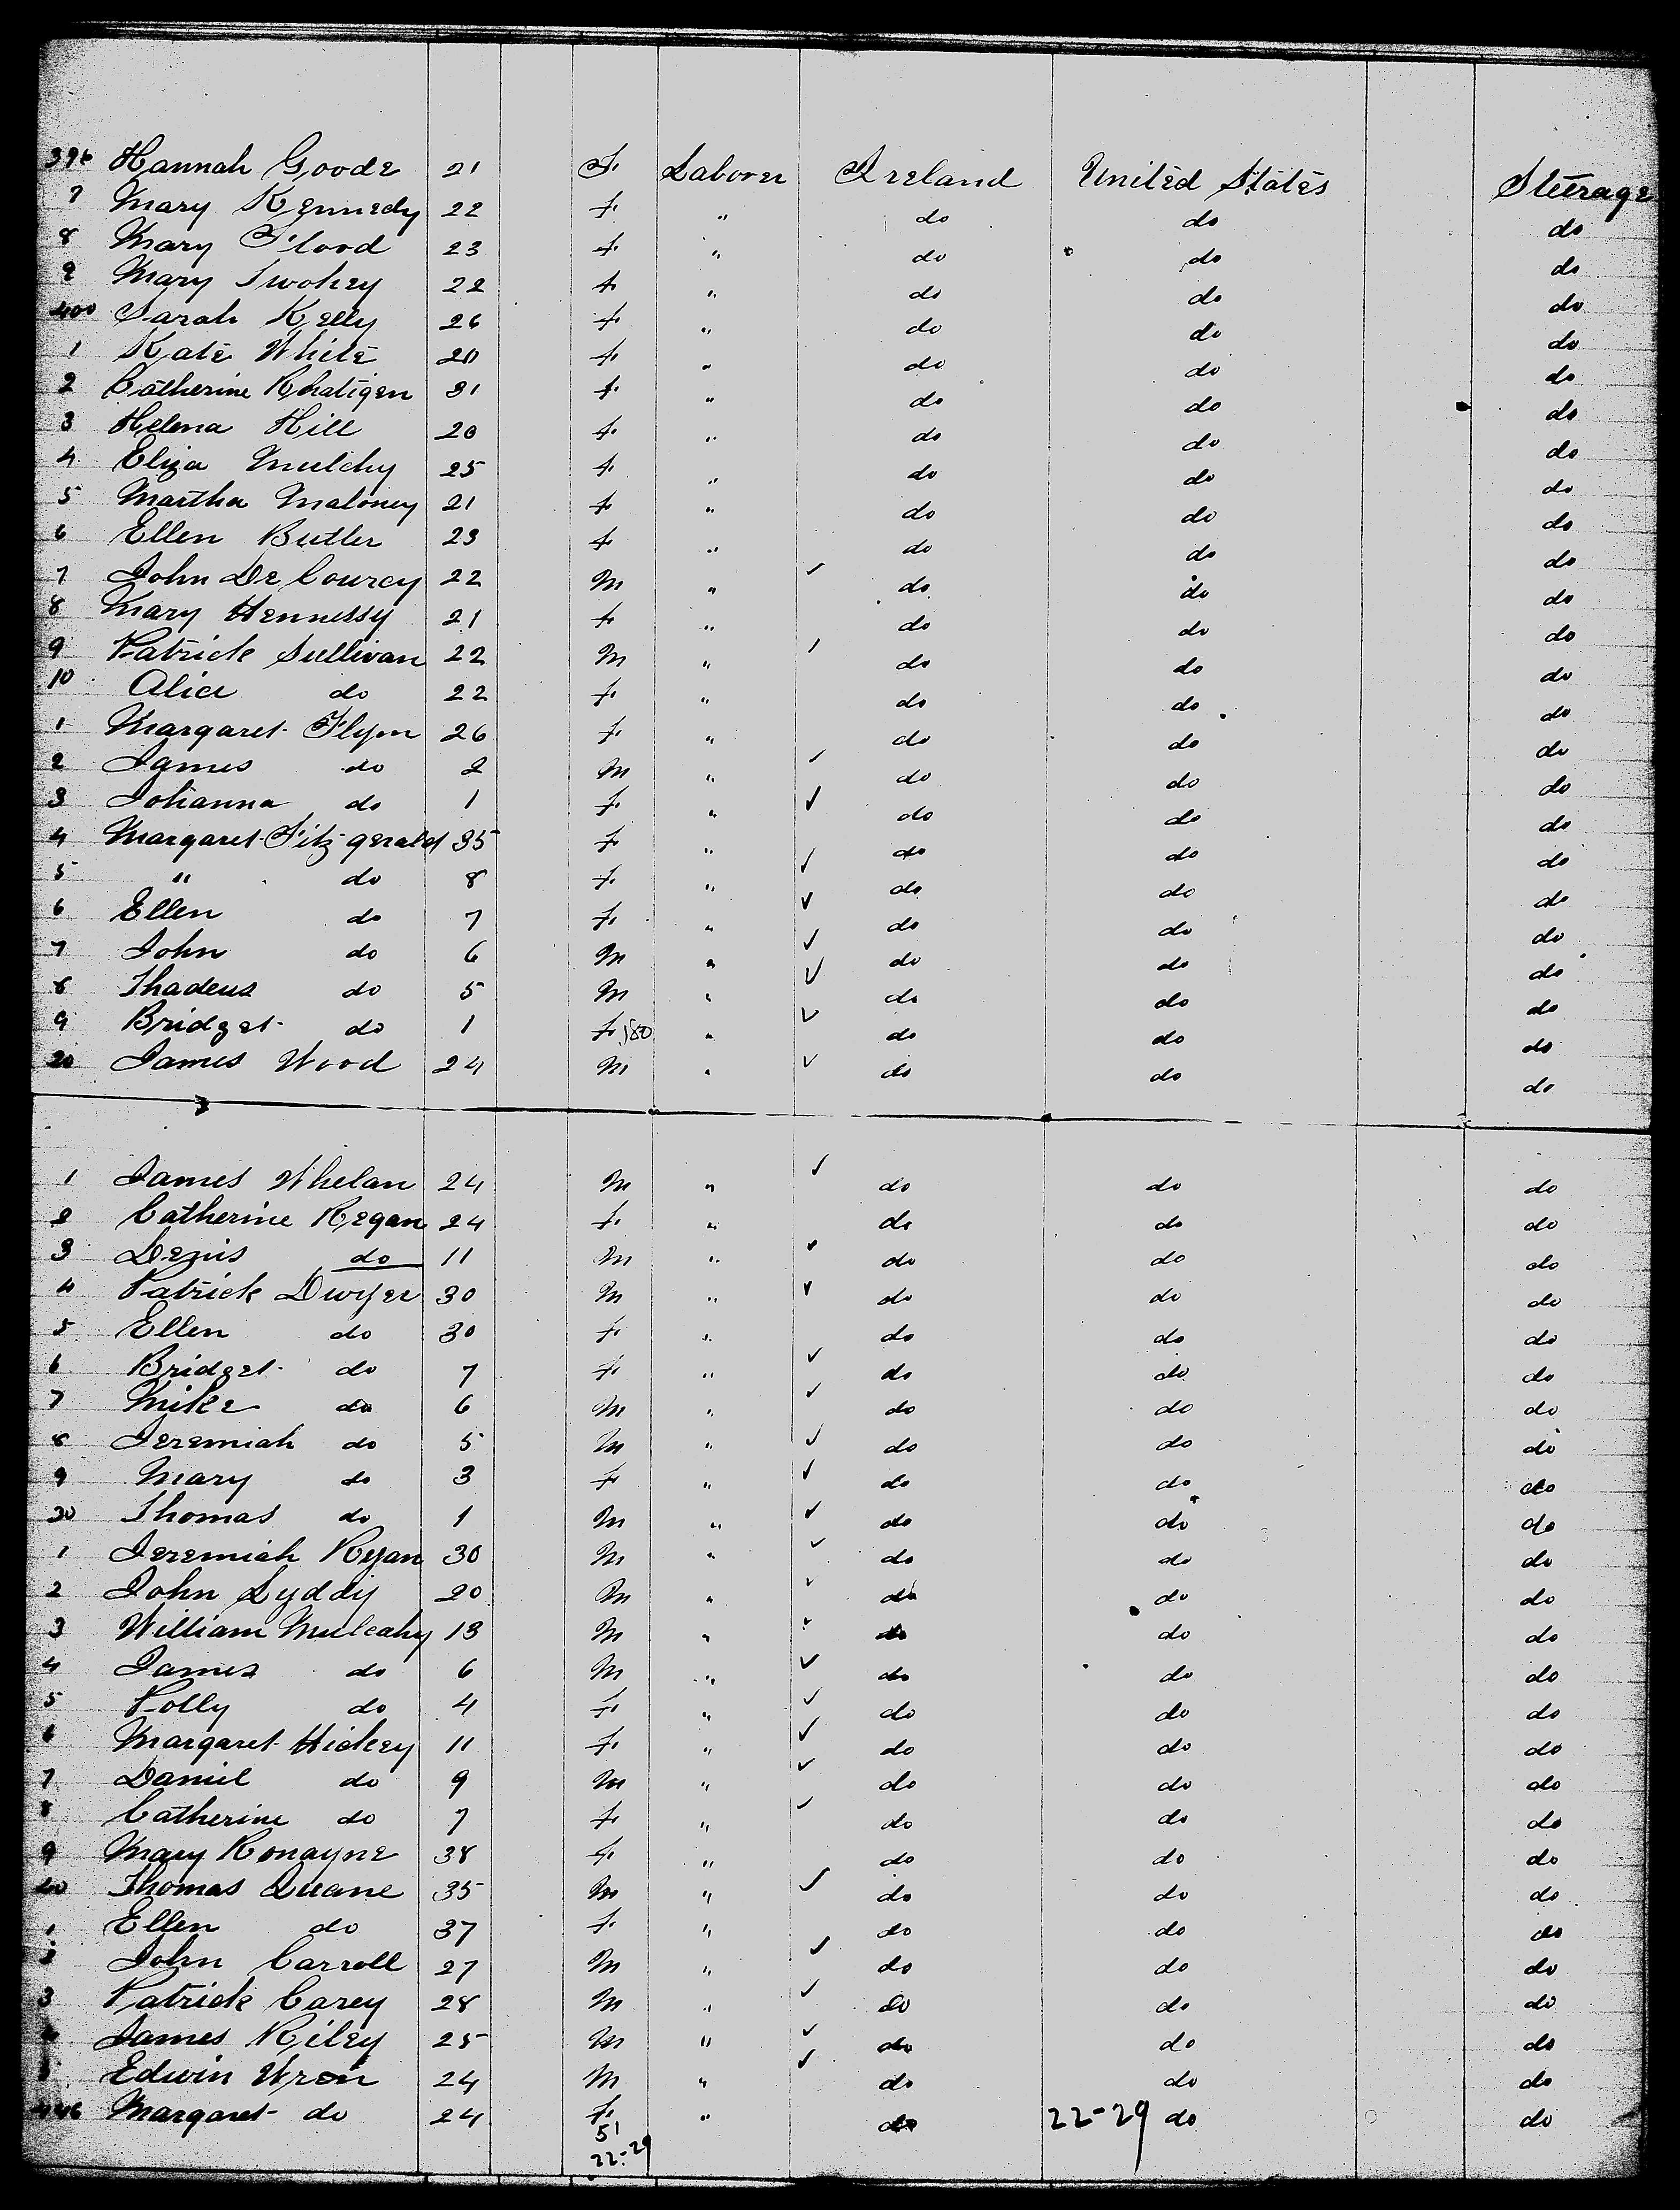 396 Hannah Goode 21 F. Laborer Ireland United States Steerage
7 Mary Kennedy 22 f. " do do do
8 Mary Flood 23 f. " do do do
9 Mary Twohey 22 f. " do do do
400 Sarah Kelly 26 f. " do do do
1 Kate White 20 f. " do do do
2 Catherine Rhatigen 31 f. " do do do
3 Helena Hill 20 f. " do do do
4 Eliza Mulchy 25 f. " do do do
5 Martha Maloney 21 f. " do do do
6 Ellen Butler 23 f. " do do do
7 John De Courcy 22 M " ✓ do do do
8 Mary Hennessy 21 f. " do do do
9 Patrick Sullivan 22 M " ✓ do do do
10 Alice do 22 f. " do do do
1 Margaret Flynn 26 f. " do do do
2 James do 2 M " ✓ do do do
3 Johanna do 1 f. " ✓ do do do
4 Margaret Fitzgerald 35 f. " do do do
5 " do 8 f. " ✓ do do do
6 Ellen do 7 f. " ✓ do do do
7 John do 6 M " ✓ do do do
8 Thadeus do 5 M " ✓ do do do
9 Bridget do 1 f. 180 " ✓ do do do
20 James Wood 24 M " ✓ do do do
1 James Whelan 24 M " ✓ do do do
2 Catherine Regan 24 f. " do do do
3 Denis do 11 M " ✓ do do do
4 Patrick Dwyer 30 M " ✓ do do do
5 Ellen do 30 f. " do do do
6 Bridget do 7 f. " ✓ do do do
7 Mike do 6 M " ✓ do do do
8 Jeremiah do 5 M " ✓ do do do
9 Mary do 3 f. " ✓ do do do
30 Thomas do 1 M " ✓ do do do
1 Jeremiah Ryan 30 M " ✓ do do do
2 John Lyddy 20 M " ✓ do do do
3 William Mulcahy 13 M " ✓ do do do
4 James do 6 M " ✓ do do do
5 Polly do 4 f. " ✓ do do do
6 Margaret Hickey 11 f. " ✓ do do do
7 Daniel do 9 M " ✓ do do do
8 Catherine do 7 f. " ✓ do do do
9 Mary Ronayne 38 f. " do do do
40 Thomas Duane 35 M " ✓ do do do
1 Ellen do 37 f. " do do do
2 John Carroll 27 M " ✓ do do do
3 Patrick Carey 28 M " ✓ do do do
4 James Riley 25 M " ✓ do do do
5 Edwin Wren 24 M " ✓ do do do
446 Margaret do 24 f. " do 22-29 do do
51
22-29